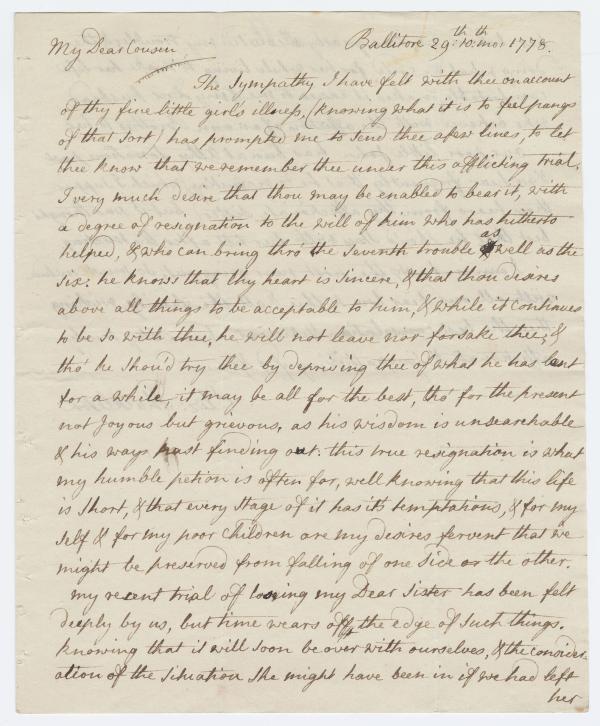 Ballitore 29th: 10th mo: 1778.
My Dear Cousin
The Sympathy I have felt with thee on account
of thy fine little girl's illness, (knowing what it is to feel pangs
of that sort) has prompted me to send thee a few lines, to let
thee know that we remember thee under this afflicting trial.
I very much desire that thou may be enabled to bear it, with
a degree of resignation to the will of him who has hitherto
helped, & who can bring thro' the seventh trouble as well as the
six: he knows that thy heart is sincere, & that thou desires
above all things to be acceptable to him, & while it continues
to be so with thee, he will not leave nor forsake thee, &
tho' he shou'd try thee by depriving thee of what he has lent
for a while, it may be all for the best, tho' for the present
not Joyous but grievous, as his wisdom is unsearchable
& his ways past finding out: this true resignation is what
my humble petion is often for, well knowing that this life
is short, & that every stage of it has it's temptations, & for my
self & for my poor Children are my desires fervent that we
might be preserved from falling of one side or the other.
My recent trial of losing my Dear Sister has been felt
deeply by us, but time wears off the edge of such things.
knowing that it will soon be over with ourselves, & the consider
ation of the situation She might have been in if we had left
her